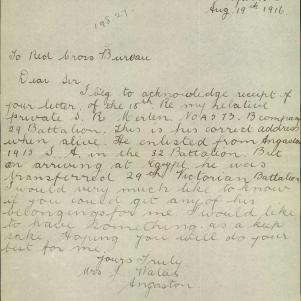 Aug 19th 1916.
19527.
To Red Cross Bureau
Dear Sir
I beg to acknowledge receipt of
your letter, of the 15th. Re my relative
Private S. R. No B company
29 Battalion. This is his correct address
when alive. He enlisted from Angaston
1915 S. A. in the 32 Battalion. But
on arriving at Egypt he was
transferred 29th Victorian Battalion
I would very much like to know
if you could get any of his
belongings for me I would like
to have something as a keep
sake. Hoping you will do your
best for me.
Yours Truly
Mrs J.
Angaston